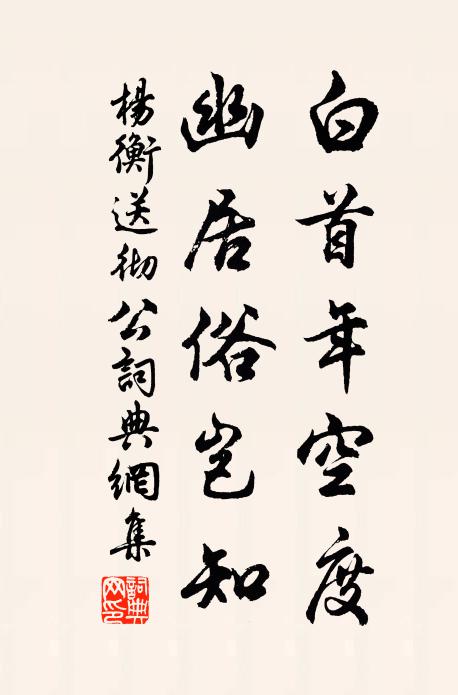 白首年空度
幽居俗岂知
楊衡送彻公詞典網集
詞典网印